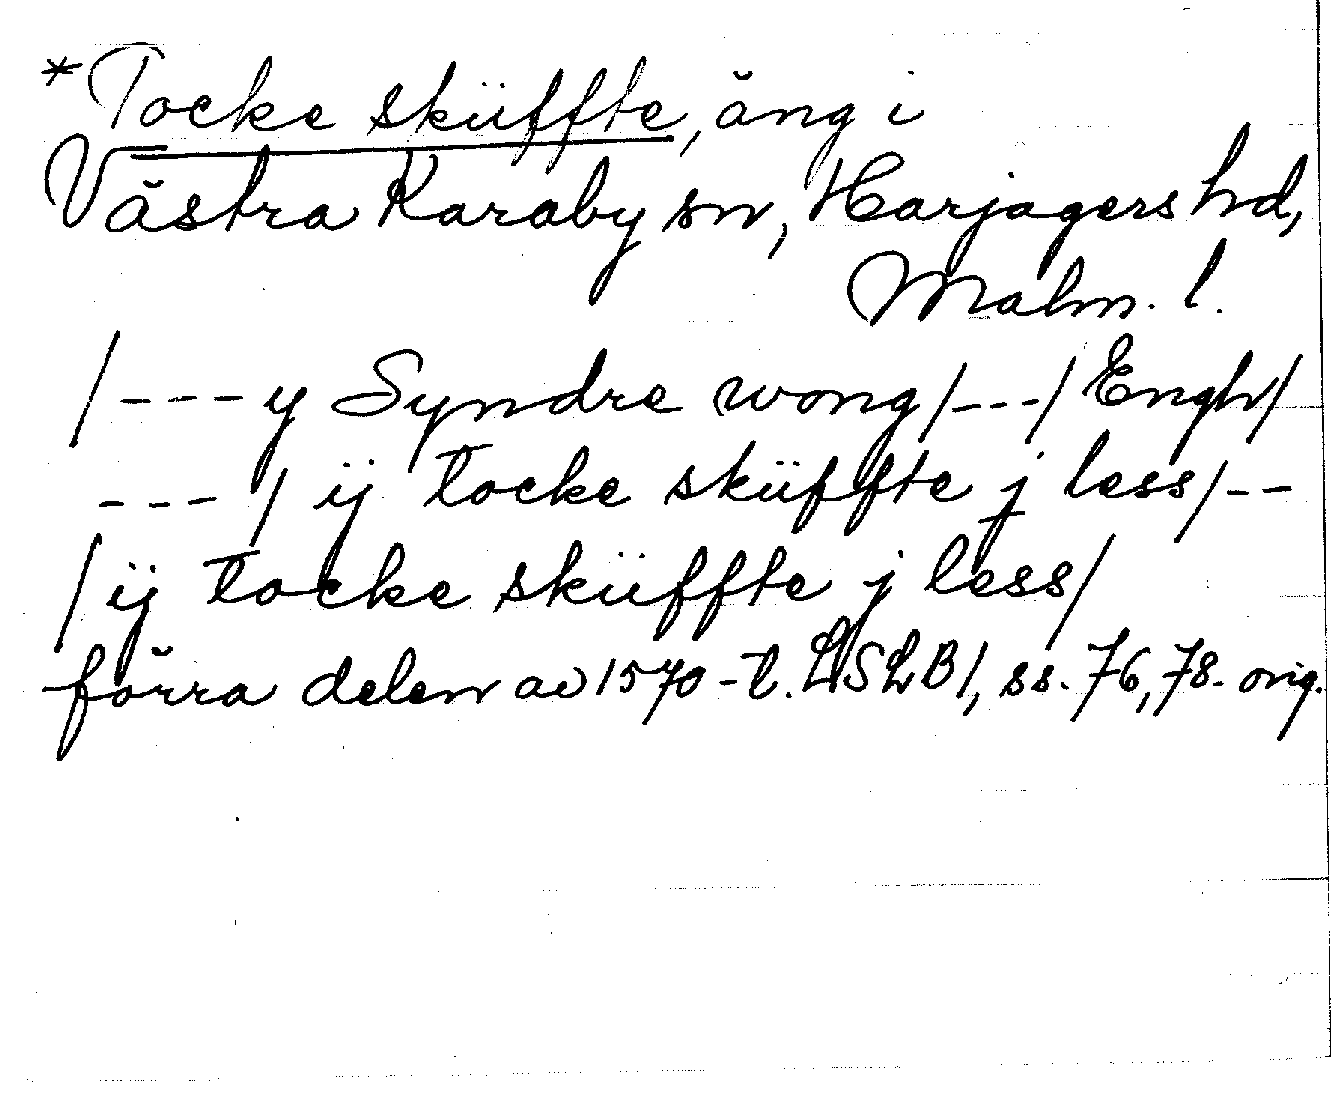 *Tocke sküffte, äng i
Västra Karaby sn, Harjagers hd,
Malm. l.
/---y Syndre wong/---/Engh/
---/ ij tocke sküffte j less/--
/ij tocke sküffte j less/
förra delen av 1570-t. LSLB1, ss. 76, 78. orig.